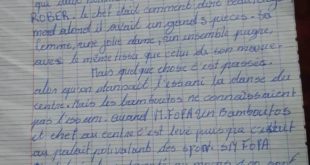 ROBER. le chef était comment dire beau,
mad alond il avait un grands succes. sa
femme, une jolie dame, un ensemble pagne,
avec le même tissu que celui de son mari.
Mais quelque chose c'est passée.
alors qu'on dansait l'essani la danse du
centre. Mais les bamboutos ne connaissaient
pas l'essani. quand M.FOPA un Bamboutos
et chef au centre c'est levé puisque c'était
au palait polyvalent des sport M FOPA